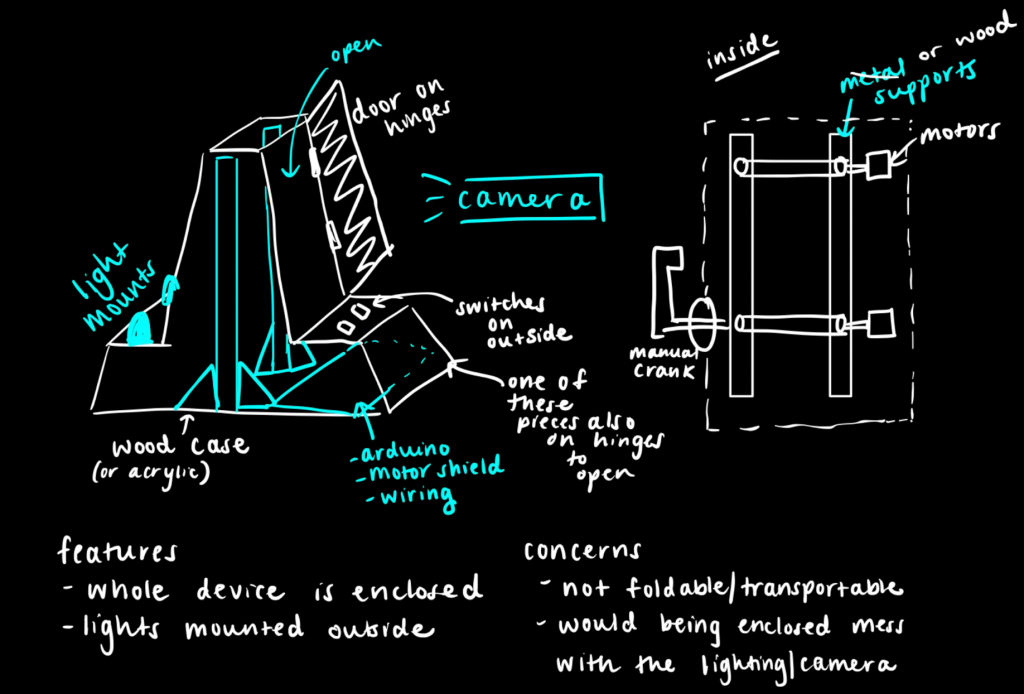 open
door on
hinges
camera
light
mounts
switches
on
outside
one of
these
pieces also
on hinges
to
open
wood case
(or acrylic)
-arduino
-motor shield
-wiring
inside
metal or wood
supports
motors
manual
crank
features
- whole device is enclosed
- lights mounted outside
concerns
- not foldable/transportable
- would being enclosed mess
with the lighting/camera